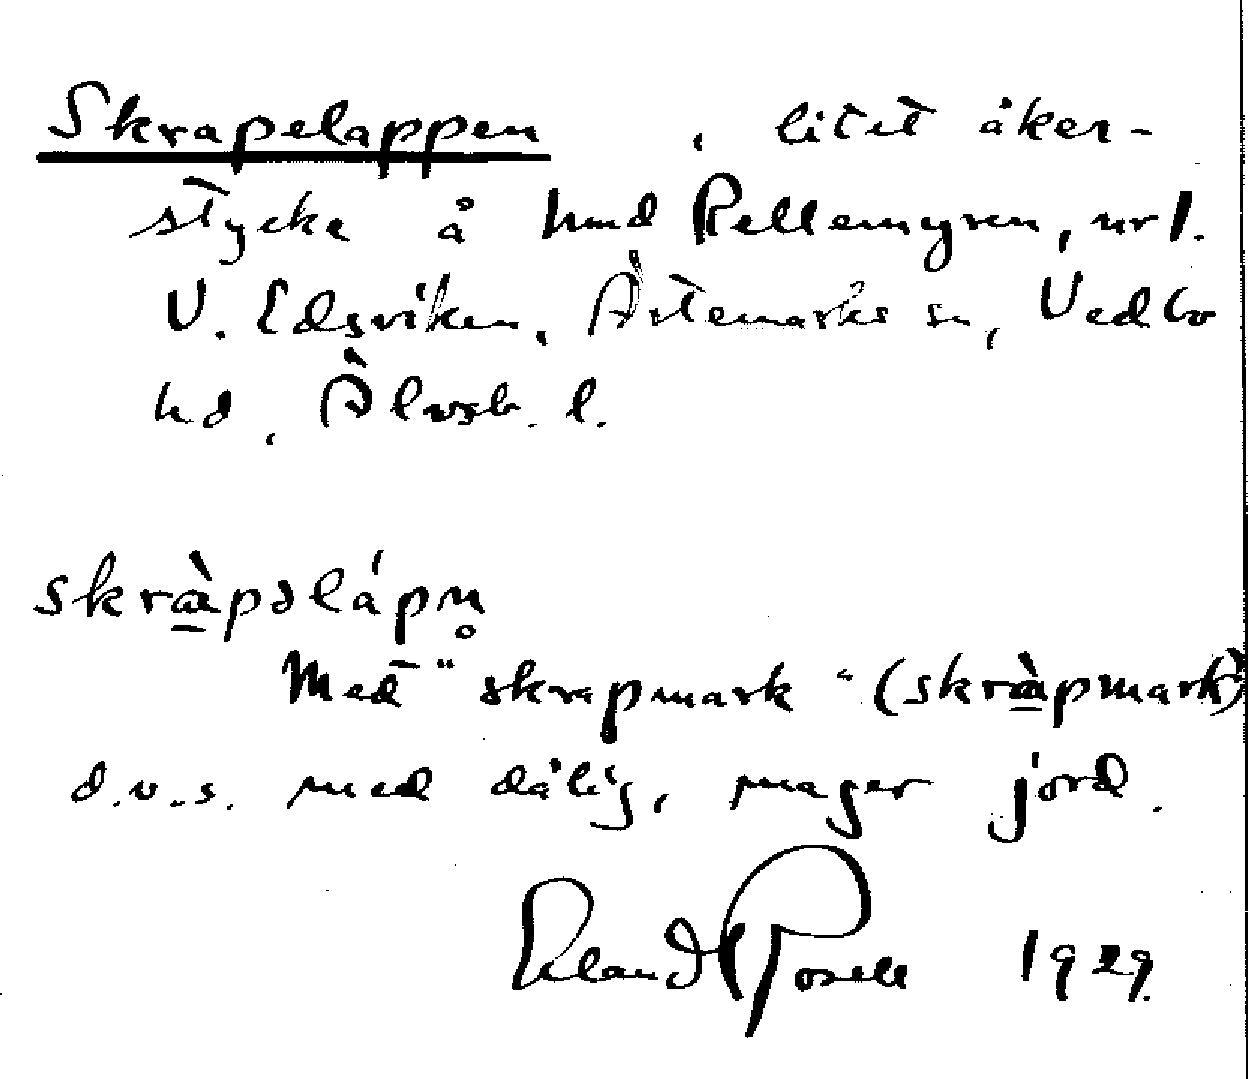 Skrapelappen, litet åker-
stycke å hmd Pellemyren, nr 1.
V. Edsviken, Ärtemarks sn, Vedbo
hd, Älvsb. l.
skràpəlápn̥
Med "skrapmark" (skràpmark)
d.v.s. med dålig, mager jord.
Erland Rosell 1929.